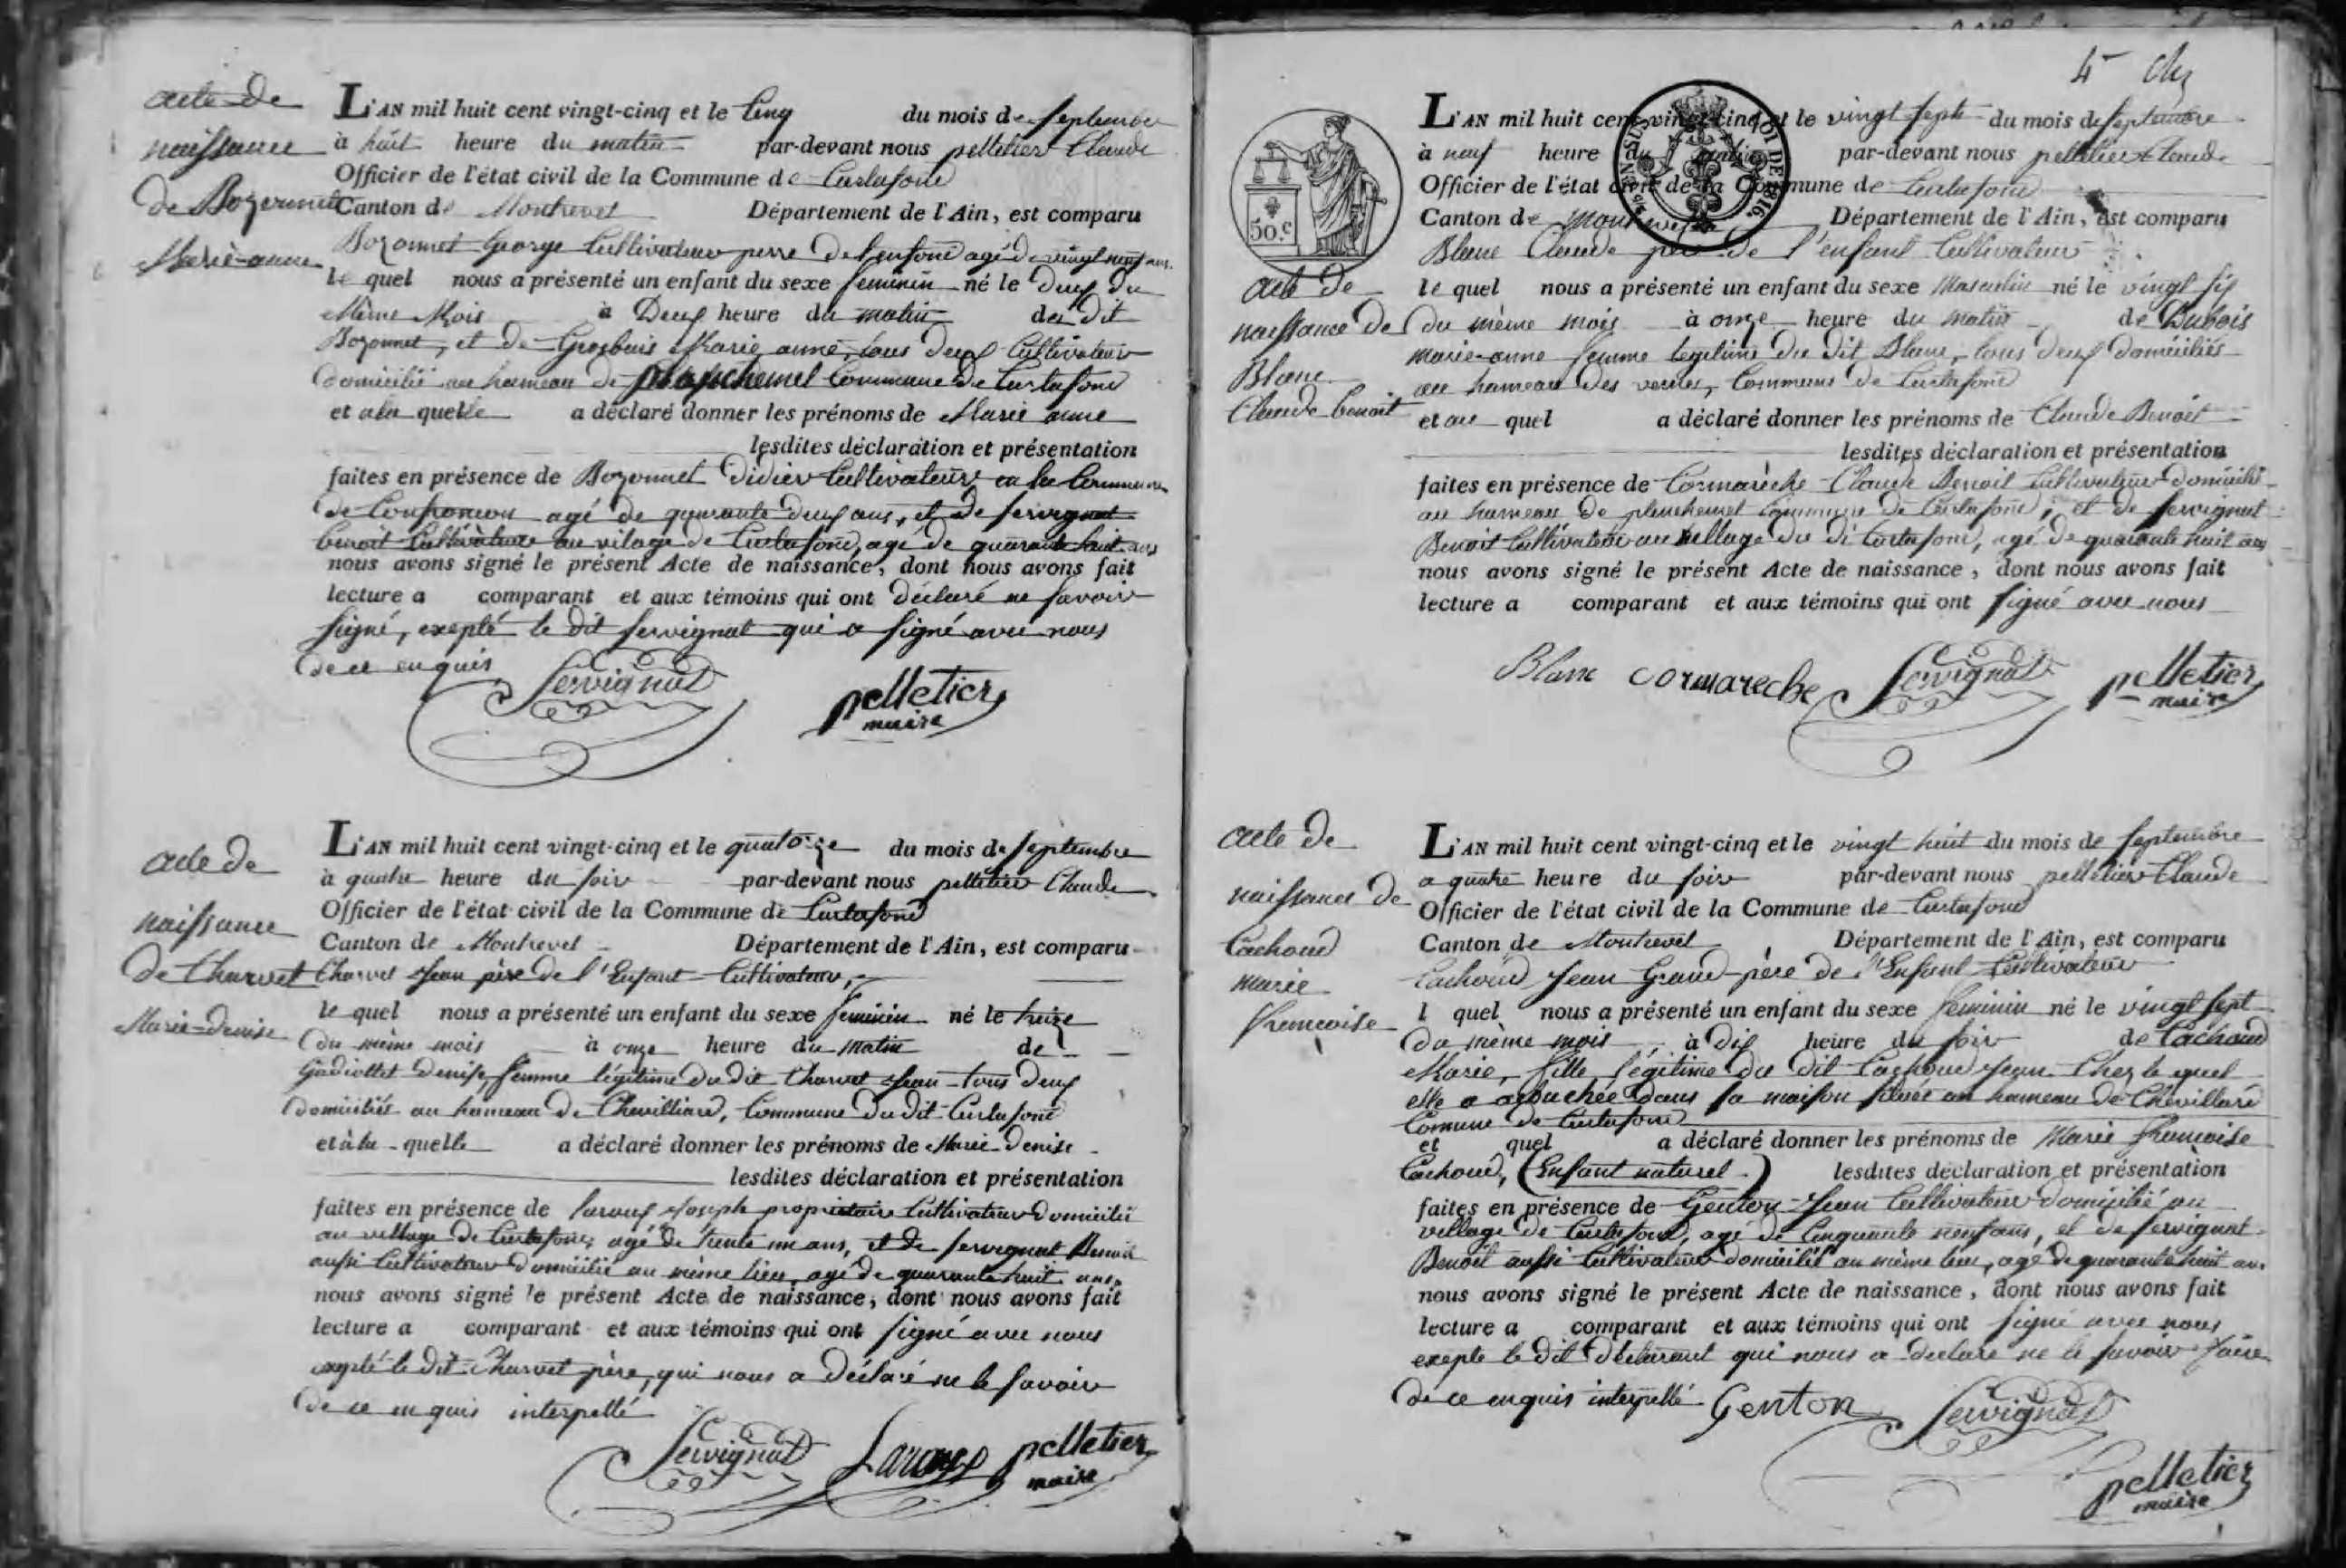 acte de
naissance
de Bozonnet
Marie-anne
L'AN mil huit cent vingt-cinq et le Cinq du mois de septembre
à huit heure du matin par-devant nous pelletier Claude
Officier de l'état civil de la Commune de Curtafond
Canton de Montrevel Département de l'Ain, est comparu
Bozonnet George Cultivateur perre de l'enfant agé de vingt neuf ans.
le quel nous a présenté un enfant du sexe feminin né le deux du
même Mois à Deux heure du matin du dit
Bozonnet, et de Grosbuis Marie anne, tous deux Cultivateur
domicilié au hameau de planchemel Commune de Curtafond
et a la quelle a déclaré donner les prénoms de Marie anne
lesdites déclaration et présentation
faites en présence de Bozonnet Didier Cultivateur en la Commune
de Confrancon agé de quarante deux ans, et de servignat
benoit Cultivateur au vilage de Curtafond, agé de quarante huit ans
nous avons signé le présent Acte de naissance, dont nous avons fait
lecture a comparant et aux témoins qui ont déclaré ne savoir
signé, exepté le dit servignat qui a signé avec nous
de ce enquis
Servignat
pelletier
maire
acte de
naissance
de Charvet
Marie-denise
L'AN mil huit cent vingt-cinq et le quatorze du mois de septembre
à quatre heure du soir par-devant nous pelletier Claude
Officier de l'état civil de la Commune de Curtafond
Canton de Montrevel Département de l'Ain, est comparu
Charvet Jean père de l'Enfant Cultivateur,
le quel nous a présenté un enfant du sexe feminin né le treize
du même mois à onze heure du matin de
Gadiollet Denise, femme légitime du dit Charvet Jean tous deux
domiciliés au hameau de Chevilliard, Commune du dit Curtafond
et à la quelle a déclaré donner les prénoms de Marie Denise
lesdites déclaration et présentation
faites en présence de Joseph propriétaire Cultivateur domicilié
au village de Curtafond, agé de trente un ans, et de servignat Benoit
aussi Cultivateur domicilié au même lieu, agé de quarante huit ans,
nous avons signé le présent Acte de naissance, dont nous avons fait
lecture a comparant et aux témoins qui ont signé avec nous
exepté le dit Charvet père, qui nous a déclaré ne le savoir
de ce enquis interpellé
Servignat
pelletier
maire
4
50.c
LOI DE 1816.
acte de
naissance de
Blanc
Claude benoit
L'AN mil huit cent vingt-cinq et le vingt sept du mois de septembre
à neuf heure du matin par-devant nous pelletier Claude
Officier de l'état civil de la Commune de Curtafond
Canton de Montrevel Département de l'Ain, est comparu
Blanc Claude père de l'enfant Cultivateur
le quel nous a présenté un enfant du sexe Masculin né le vingt six
du même mois à onze heure du matin de Dubois
marie-anne femme légitime du dit Blanc, tous deux domiciliés
au hameau des vernes, Commune de Curtafond
et au quel a déclaré donner les prénoms de Claude Benoit
lesdites déclaration et présentation
faites en présence de Cormarèche Claude Benoit Cultivateur domicilié
au hameau de planchemel Commune de Curtafond, et de servignat
Benoit Cultivateur au village du di Curtafond, agé de quarante huit ans
nous avons signé le présent Acte de naissance, dont nous avons fait
lecture a comparant et aux témoins qui ont signé avec nous
Blanc cormareche Servignat pelletier
maire
acte de
naissance de
Cachoud
marie
francoise
L'AN mil huit cent vingt-cinq et le vingt huit du mois de septembre
a quatre heure du soir par-devant nous pelletier Claude
Officier de l'état civil de la Commune de Curtafond
Canton de Montrevel Département de l'Ain, est comparu
Cachoud Jean Grand-père de l'Enfant Cultivateur
l quel nous a présenté un enfant du sexe feminin né le vingt sept
du même mois, à dix heure du soir de Cachoud
Marie, fille légitime du dit Cachoud Jean Chez le quel
elle a acouchée dans sa maison située au hameau de Chevillard
Comune de Curtafond
et quel a déclaré donner les prénoms de Marie francoise
Cachoud, (Enfant naturel.) lesdites déclaration et présentation
faites en présence de Genton Jean Cultivateur domicilié au
village de Curtafond, agé de Cinquante neuf ans, et de servignat
Benoit aussi Cultivateur domicilié au même lieu, agé de quarante huit ans
nous avons signé le présent Acte de naissance, dont nous avons fait
lecture a comparant et aux témoins qui ont signé avec nous
exepte le dit déclarant qui nous a declaré ne le savoir faire
de ce enquis interpellé
Genton Servignat
pelletier
maire